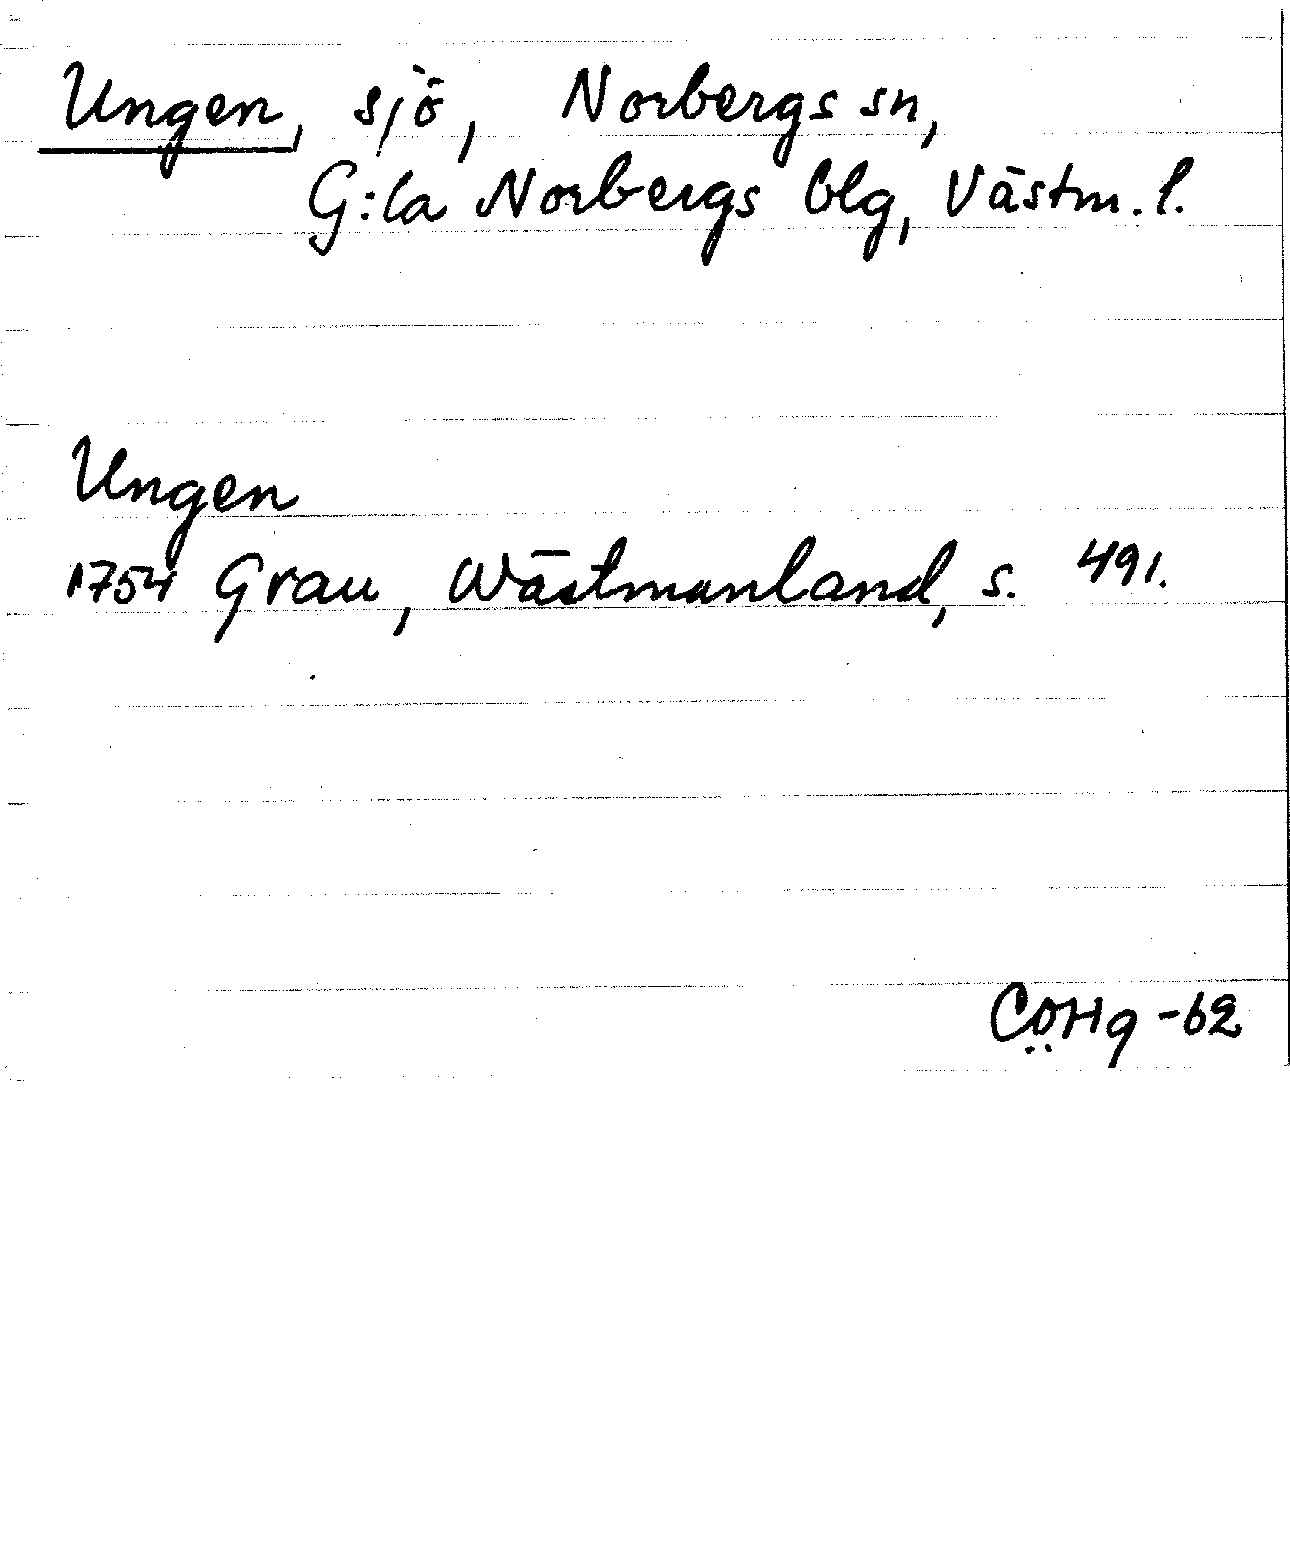 Ungen, sjö, Norbergs sn,
G:la Norbergs blg, Västm. l.
Ungen
1754 Grau, Wästmanland, s. 491.
CÖHg -62